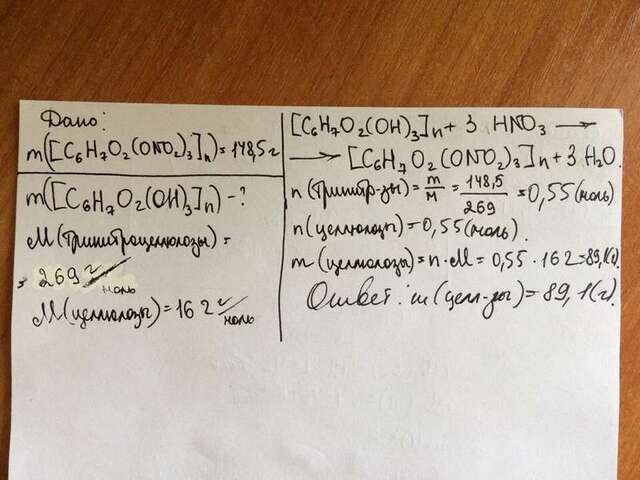 Дано:
m([C6H7O2(ONO2)3]n)=148,5г
m([C6H7O2(OH)3]n)-?
M(тринитроцеллюлозы)=
=269г/моль
M(целлюлозы)=162г/моль
[C6H7O2(OH)3]n+3 HNO3→
→[C6H7O2(ONO2)3]n+3H2O.
n(тринитр-зы)=m/M=148,5/269=0,55(моль)
n(целлюлозы)=0,55(моль).
m(целлюлозы)=n·M=0,55·162=89,1(г).
Ответ: m(целл-зы)=89,1(г).